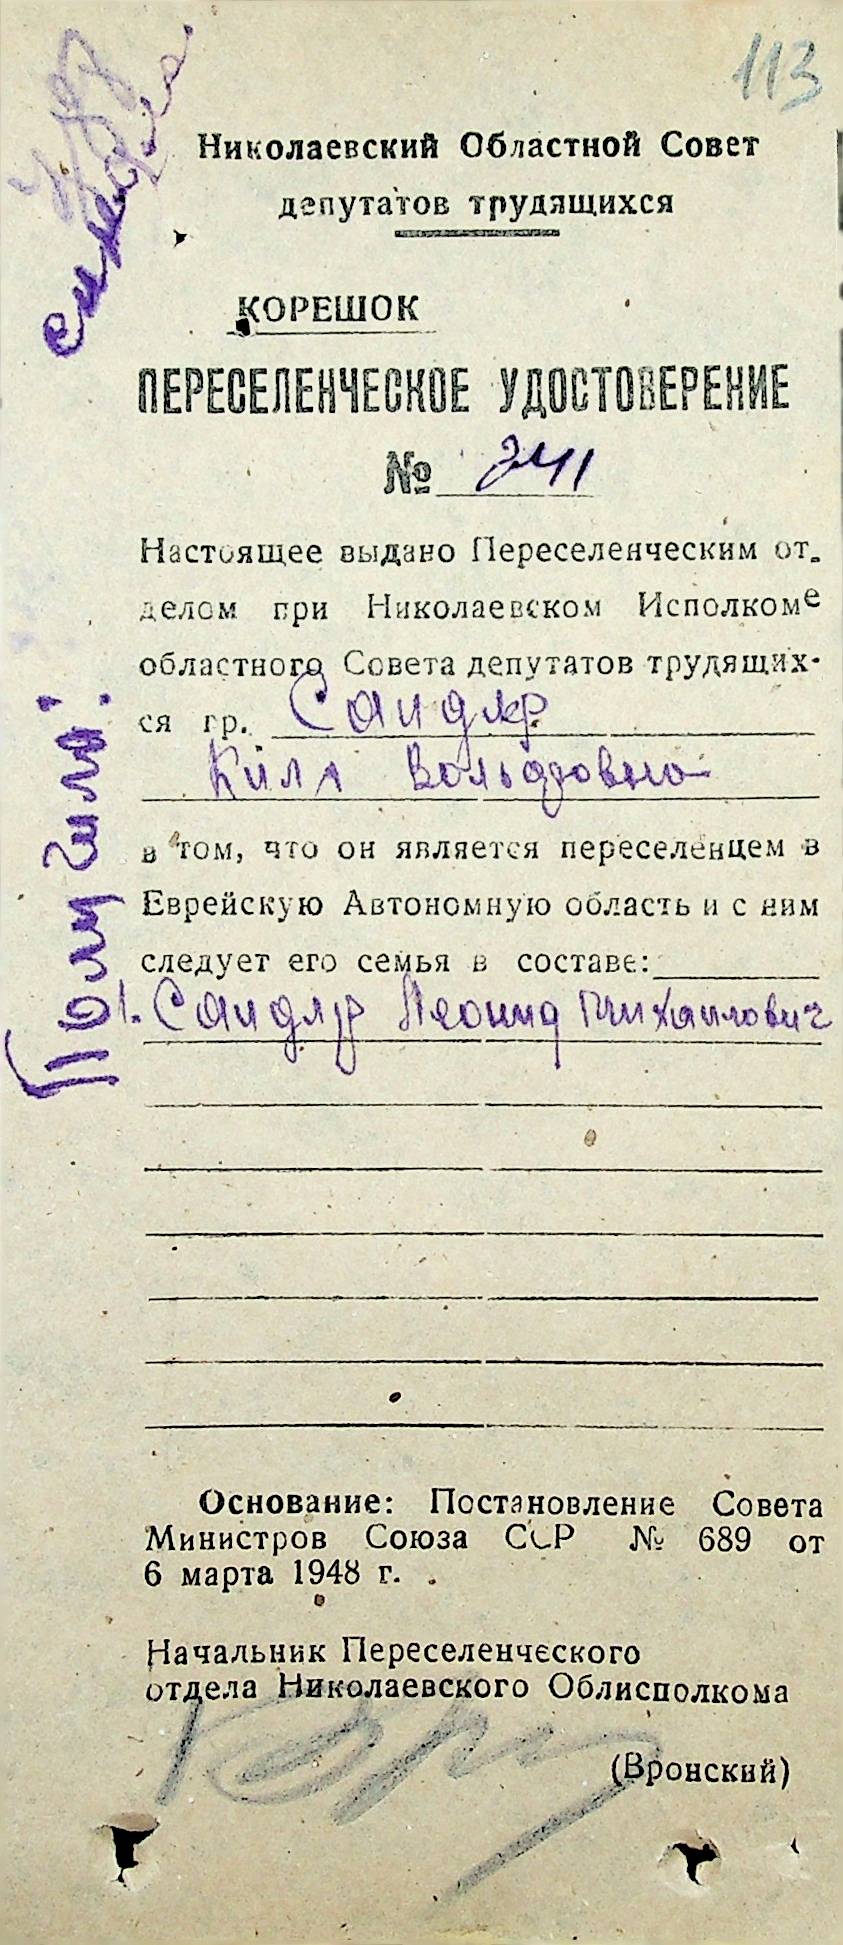 113
Николаевский Областной Совет
депутатов трудящихся
КОРЕШОК
ПЕРЕСЕЛЕНЧЕСКОЕ УДОСТОВЕРЕНИЕ
№ 241
Настоящее выдано Переселенческим от-
делом при Николаевском Исполкоме
областного Совета депутатов трудящих-
ся гр. Сандлер
Кила Вольфовна
в том, что он является переселенцем в
Еврейскую Автономную область и с ним
следует его семья в составе:
1. Сандлер Леонид Михайлович
Получила:
Основание: Постановление Совета
Министров Союза ССР № 689 от
6 марта 1948 г.
Начальник Переселенческого
отдела Николаевского Облисполкома
(Вронский)